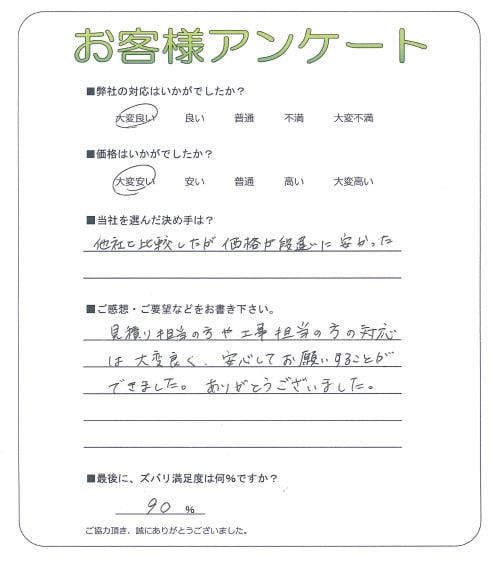 お客様アンケート
■弊社の対応はいかがでしたか?
大変良い 良い 普通 不満 大変不満
■価格はいかがでしたか?
大変安い 安い 普通 高い 大変高い
■当社を選んだ決め手は?
他社と比較したが価格が段違いに安かった
■ご感想・ご要望などをお書き下さい。
見積り担当の方や工事担当の方の対応
は大変良く、安心してお願いすることが
できました。ありがとうございました。
■最後に、ズバリ満足度は何%ですか?
90 %
ご協力頂き、誠にありがとうございました。